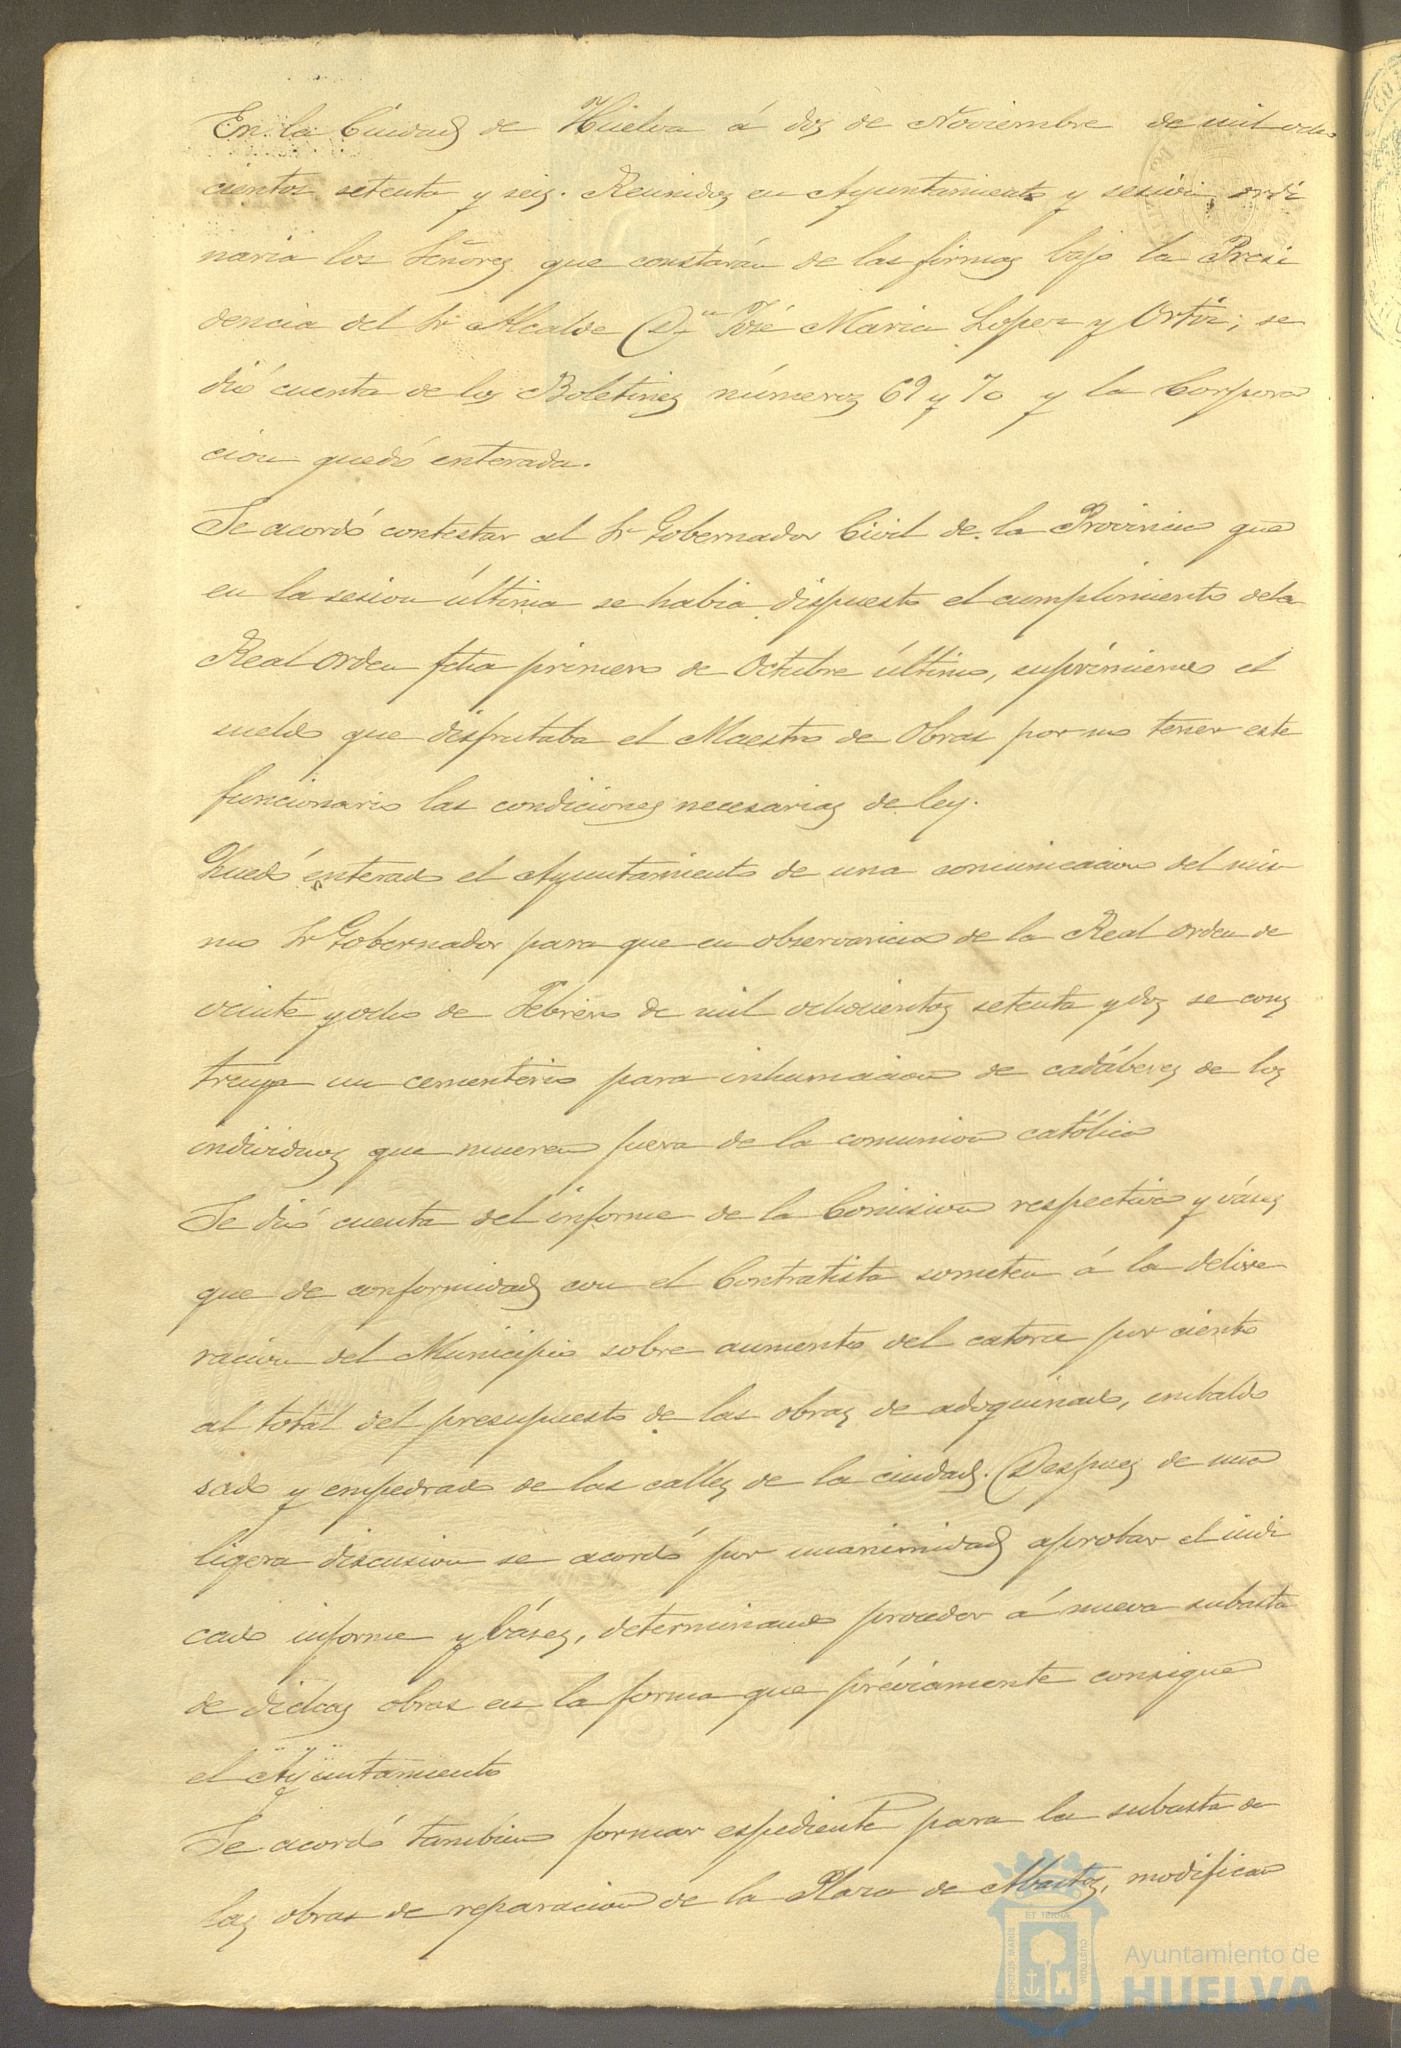 En la Ciudad de Huelva á dos de Noviembre de mil ocho
cientos setenta y seis. Reunidos en Ayuntamiento y sesion ordi
naria los Señores que constarán de las firmas bajo la Presi
dencia del Sr. Alcalde Dn José Maria Lopez y Ortiz, se
dió cuenta de los Boletines números 69 y 70 y la Corpora
cion quedó enterada.
Se acordó contestar al Sr Gobernador Civil de la Provincia que
en la sesion última se habia dispuesto el cumplimiento dela
Real orden fcha primero de Octubre último, suprimiendo el
sueldo que disfrutaba el Maestro de Obras por no tener este
funcionario las condiciones necesarias de ley.
Quedó enterado el Ayuntamiento de una comunicacion del mis
mo Sr Gobernador para que en observancia de la Real orden de
veinte y ocho de Febrero de mil ochocientos setenta y dos se cons
truya un cementerio para inhumacion de cadáberes de los
individuos que mueren fuera de la comunion católica
Se dió cuenta del informe de la Comision respectiva y báses
que de conformidad con el Contratista someten á la delive
racion del Municipio sobre aumento del catorce por ciento
al total del presupuesto de las obras de adoquinado, embaldo
sado y empedrado de las calles de la ciudad. Despues de una
ligera discusion se acordó por unanimidad aprobar el indi
cado informe y báses, determinando proceder á nueva subasta
de dichas obras en la forma que préviamente consigue
el Ayuntamiento
Se acordó tambien formar espediente para la subasta de
las obras de reparacion de la Plaza de Abastos, modifican
PORTUS MARIS
ET TERRAE
CUSTODIA
Ayuntamiento de
HUELVA